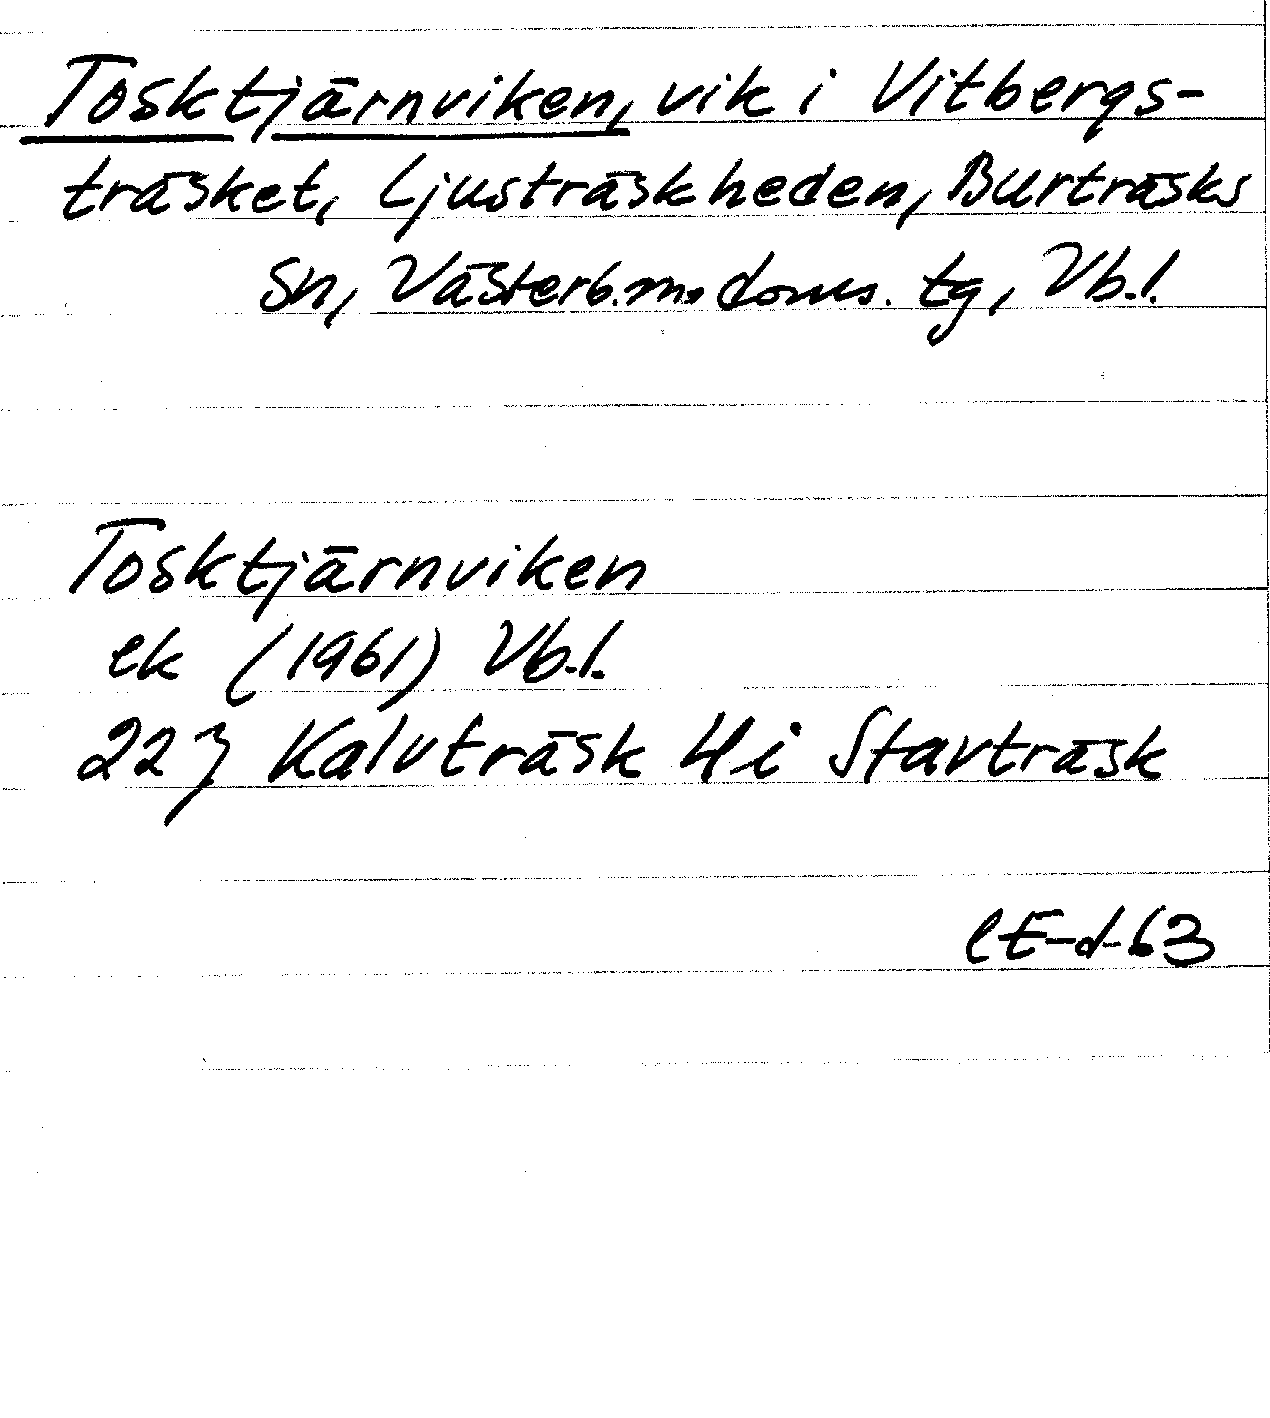 Tosktjärnviken, vik i Vitbergs-
träsket, Ljusträskheden, Burträsks
sn, Västerb.m. doms. tg, Vb.l.
Tosktjärnviken
ek (1961) Vb.l.
22 J Kalvträsk 4i Stavträsk
CE-d-63